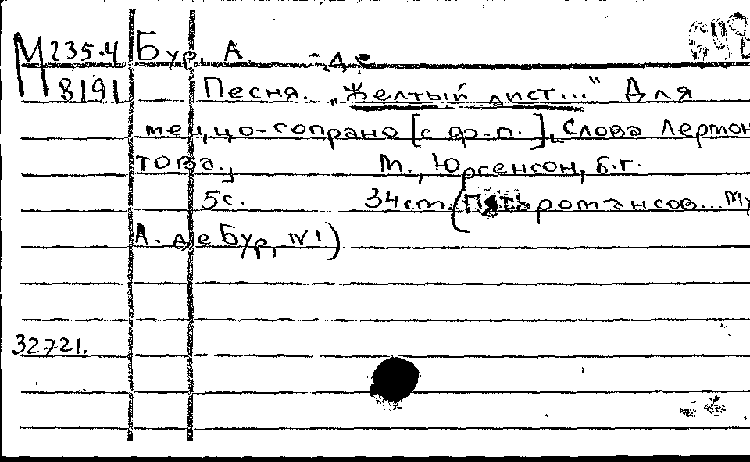 М 235.4 Бур, А. де
8191 Песня. „Желтый лист..." Для
меццо-сопрано [с фр-п.]. Слова Лермон
това.
М., Юргенсон, б.г.
5с. 34cm. (Пять романсов... Му
А. де Бур, №1)
32721.